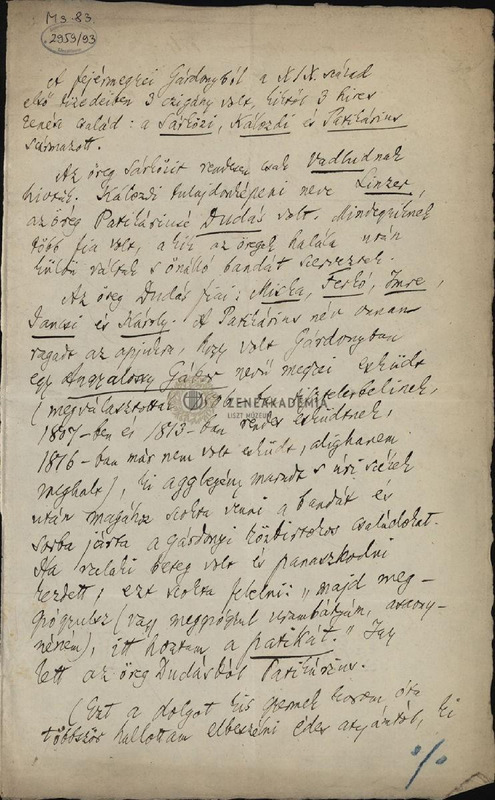 Ms. 83.
2959/93
A fejérmegyei Gárdonyból a XIX. század
első tizedeiben 3 czigány volt, kiktől 3 hires
zenész család: a Sárközi, Kálozdi és Patikárius
származott.
Az öreg Sárközit rendesen csak Vadludnak
hivták. Kálozdi tulajdonképeni neve Linzer,
az öreg Patikáriusé Dudás volt. Mindegyiknek
több fia volt, a kik az öregek halála után
külön váltak s önálló bandát szerveztek.
Az öreg Dudás fiai: Miska, Ferkó, Imre,
Jancsi és Károly. A Patikárius név onnan
ragadt az apjukra, hogy volt Gárdonyban
egy Angyalossy Gábor nevű megyei esküdt
(megválasztottak
1807-ben és 1813-ban rendes esküdtnek,
1816-ban már nem volt esküdt, alighanem
meghalt), ki agglegény maradt s úri székek
után magához szokta venni a bandát és
sorba járta a gárdonyi közbirtokos családokat.
Ha valaki beteg volt és panaszkodni
kezdett, ezt szokta felelni: „majd meg-
gyógyulsz (vagy meggyógyul urambátyám, asszony-
néném), itt hoztam a patikát." Igy
lett az öreg Dudásból Patikárius.
(Ezt a dolgot kis gyermek korom óta
többször hallottam elbeszélni édes atyámtól, ki
%
ZENEAKADÉMIA
LISZT MÚZEUM